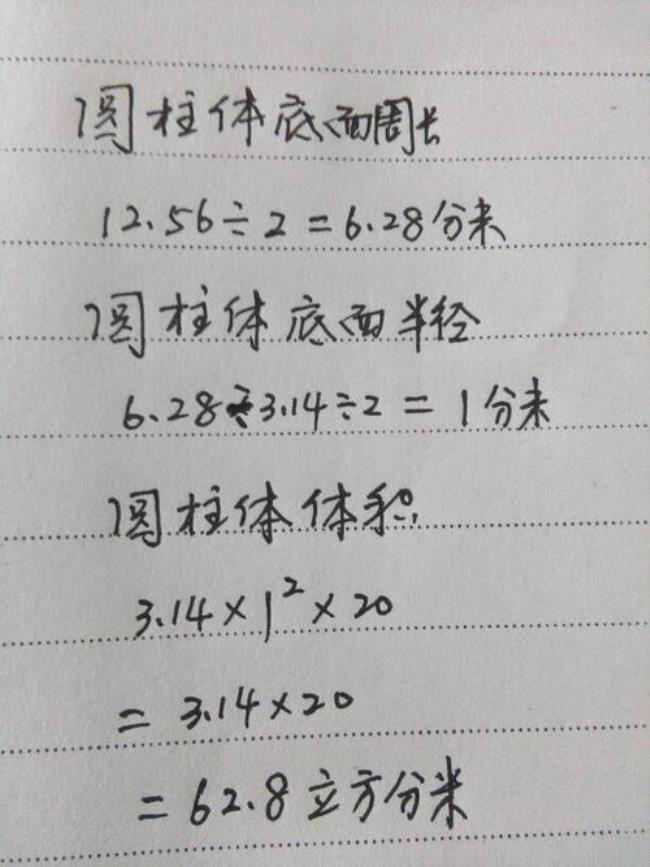 圆柱体底面周长
12.56÷2=6.28分米
圆柱体底面半径
6.28÷3.14÷2=1分米
圆柱体体积
3.14×1²×20
=3.14×20
=62.8立方分米